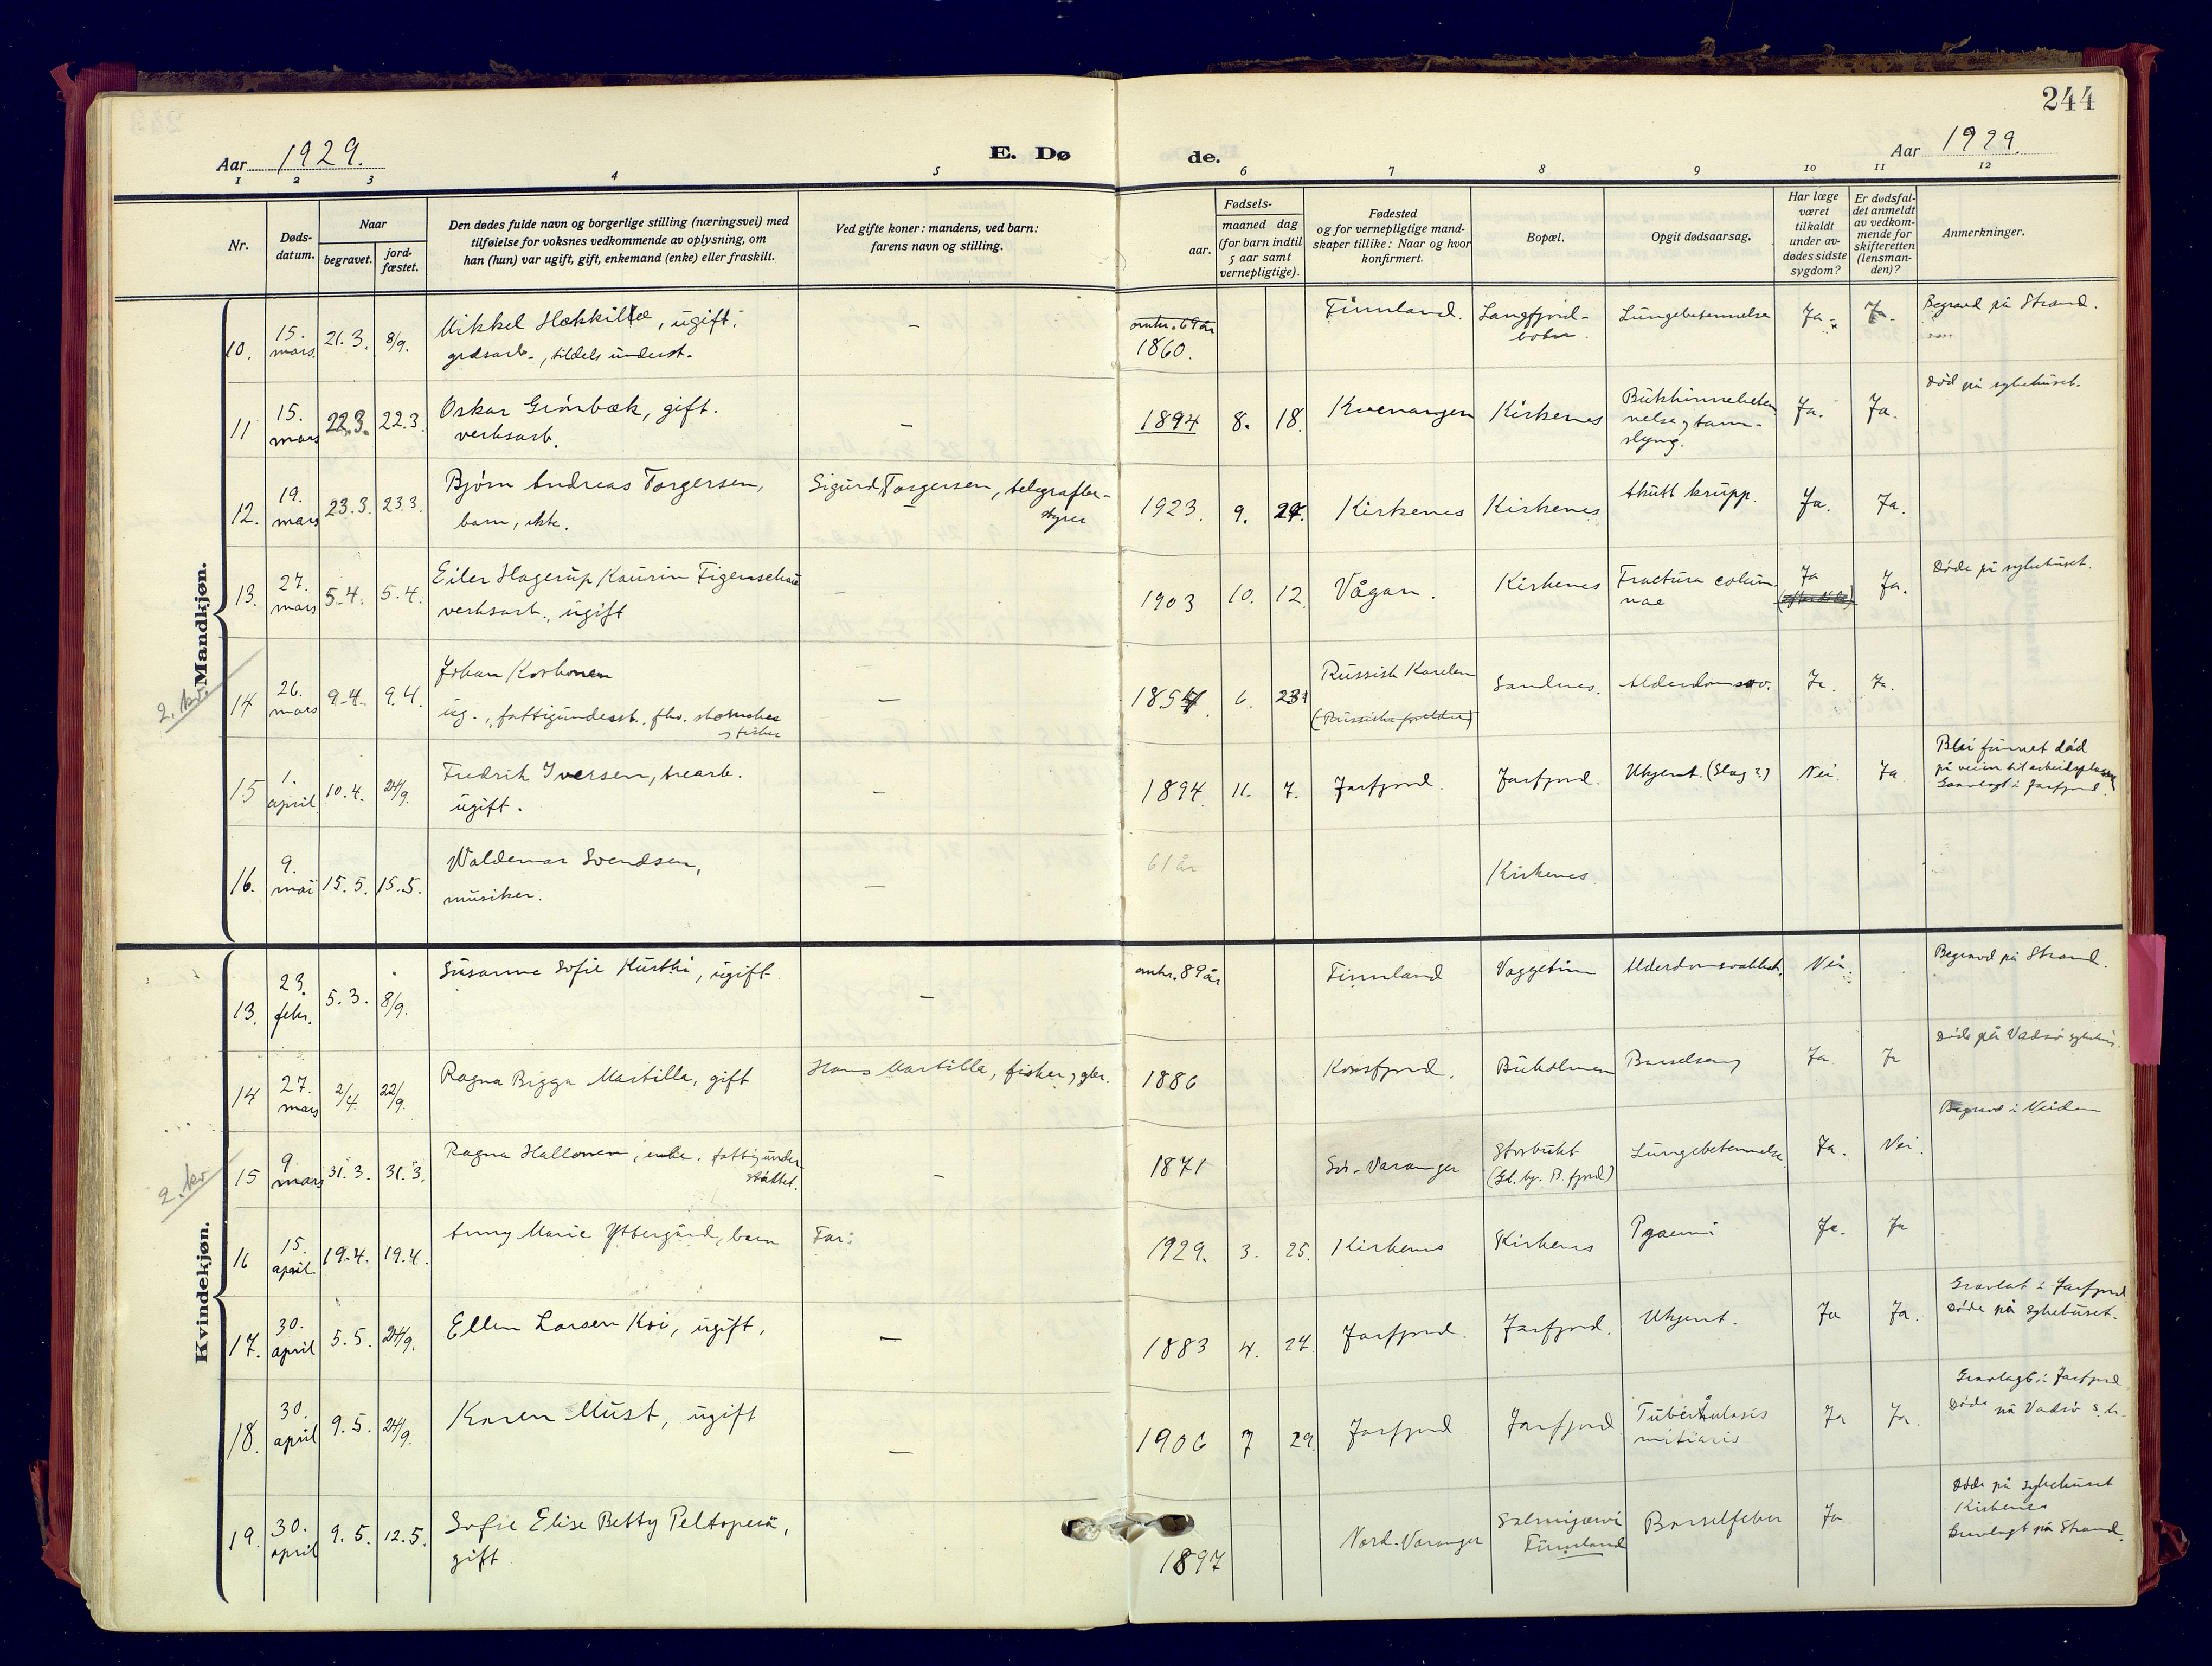 244
Aar 1929.
E. Dø
de.
Aar 1929.
1 2 3 4 5 6 7 8 9 10 11 12
Nr.
Døds-
datum.
Naar
begravet.
jord-
fæstet.
Den dødes fulde navn og borgerlige stilling (næringsvei) med
tilføielse for voksnes vedkommende av oplysning, om
han (hun) var ugift, gift, enkemand (enke) eller fraskilt.
Ved gifte koner: mandens, ved barn:
farens navn og stilling.
Fødsels-
aar.
maaned dag
(for barn indtil
5 aar samt
vernepligtige).
Fødested
og for vernepligtige mand-
skaper tillike: Naar og hvor
konfirmert.
Bopæl.
Opgit dødsaarsag.
Har læge
været
tilkaldt
under av-
dødes sidste
sygdom?
Er dødsfal-
det anmeldt
av vedkom-
mende for
skifteretten
(lensman-
den)?
Anmerkninger.
Mandkjøn.
10. 15. mars. 21.3. 8/9. Mikkel Hækkilæ, ugift, – omtr. 69 år Finnland. Langfjord- Lungebetennelse Ja. Ja. Begravd på Strand.
grdsarb., tildels underst. 1860. botn.
11 15. mars 22.3. 22.3. Oskar Grönbæk, gift. – 1894 8. 18. Kvenangen Kirkenes Bukhinnebeten Ja. Ja. Död på sykehuset.
verksarb. nelse, tarm-
slyng.
12. 19. mars 23.3. 23.3. Bjørn Andreas Torgersen, Sigurd Torgersen, telegrafbe- 1923. 9. Kirkenes Kirkenes Akutt krupp. Ja. Ja.
barn, ekte. styrer
13. 27. mars 5.4. 5.4. Eiler Hagerup Kaurin Figenschau – 1903 10. 12. Vågan. Kirkenes Fractura colum- Ja Ja. Døde på sykehuset.
verksarb., ugift nae
2. kv.
14 26. mars 9.4. 9.4. Johan Korhonen – 6. 23. Russisk Karelen Sandnes. Ja. Ja.
ug., fattigunderst. fhv. skomaker
, fisker (Russiske foreldre)
15 1. april 10.4. 24/9. Fredrik Iversen, trearb. – 1894. 11. 7. Jarfjord. Jarfjord. Ukjent. (Slag?) Nei. Ja. Blei funnet död
ugift. på veien til arbeidsplassen
Gravlagt i Jarfjord.
16. 9. mai 15.5. 15.5. Waldemar Svendsen, – 61 år Kirkenes.
musiker.
Kvindekjøn.
13. 23. febr. 5.3. 8/9. Susanne Sofie Kurthi, ugift – omtr. 89 år Finnland Vaggetem Nei. Begravd på Strand.
14 27. mars 2/4. 22/9. Ragna Bigga Martilla, gift Hans Martilla, fisker, gbr. 1886 Korsfjord. Buholmen Barselseng Ja. Ja Döde på Vadsø sykehus.
2. kv
15 9 mars 31.3. 31.3. Ragna Hallonen, enke, fattigunder – 1871 Sör-Varanger Storbukt Lungebetennelse Ja. Nei. Begravd i Neiden
støttet. (Gl. by. B. fjord)
16 15. april 19.4. 19.4. Anny Marie Yttergård, barn Far: 1929. 3. 25. Kirkenes Kirkenes Pyaemi Ja. Ja
17. 30. april 5.5. 24/9. Ellen Larsen Koi, ugift, – 1883 4. 27. Jarfjord. Jarfjord. Ukjent. Ja Ja. Gravlagt i Jarfjord
Döde på sykehuset.
18. 30. april 9.5. 24/9. Karen Must, ugift – 1906 7 29. Jarfjord Jarfjord Tuberkulosis Ja Ja. Gravlagt i Jarfjord
miliaris Döde på Vadsö s.h.
19. 30. april 9.5. 12.5. Sofie Elise Betty Peltoperä, 1897 Nord-Varanger Salmijärvi Barselfeber Ja Döde på sykehuset
gift Finnland Kirkenes
Gravlagt på Strand.